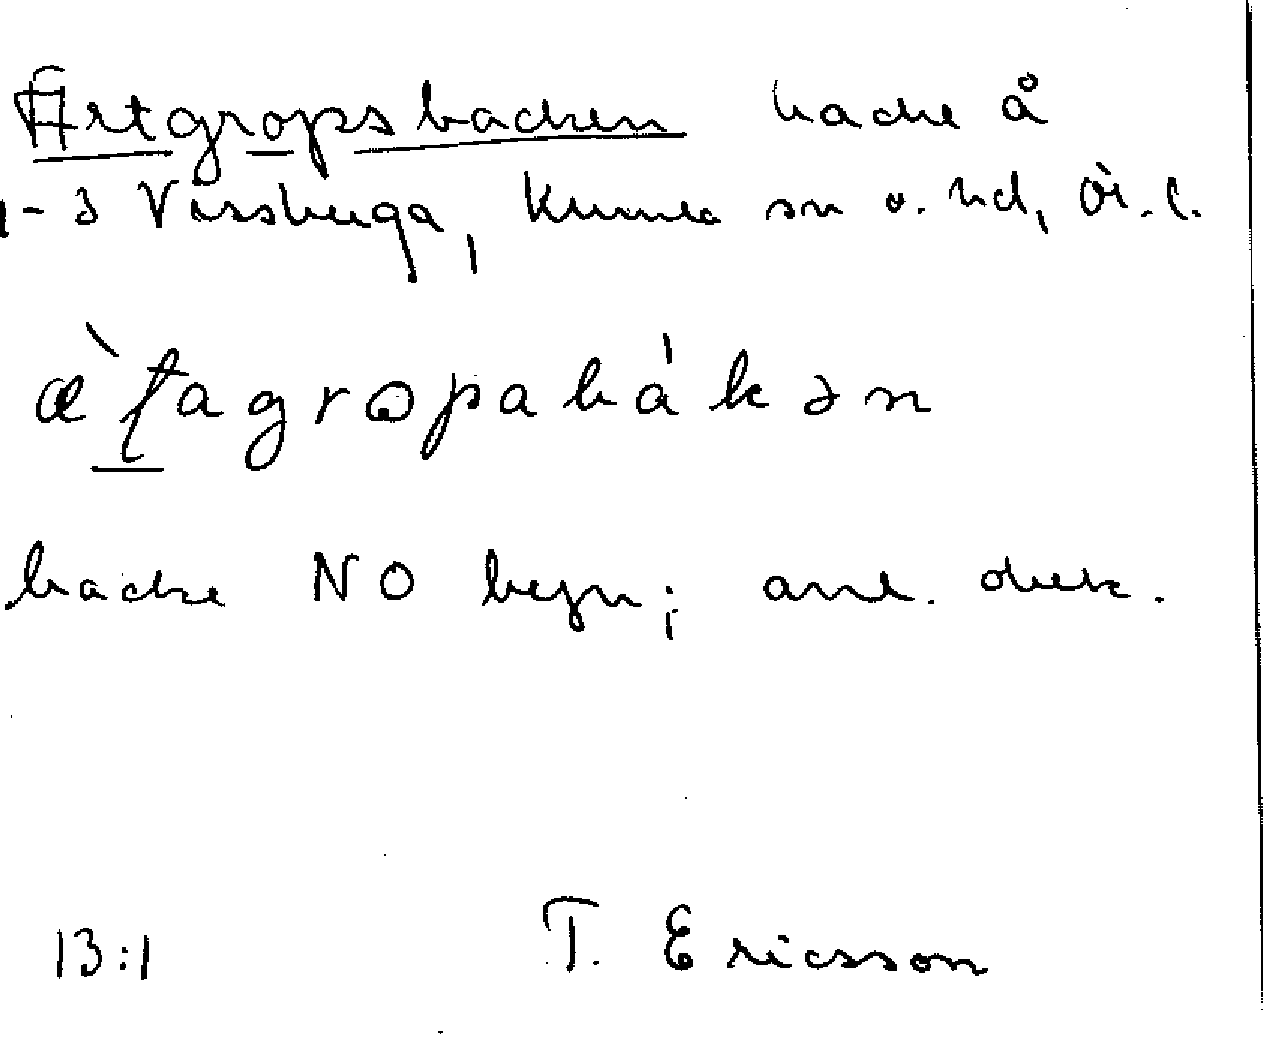 Ärtgropsbacken backe å
1-3 Vissbuga, Kumla sn o. hd, Ör. l.
æ̀ʈagropabákən
backe NO begn; anl. obek.
13:1 T. Ericsson